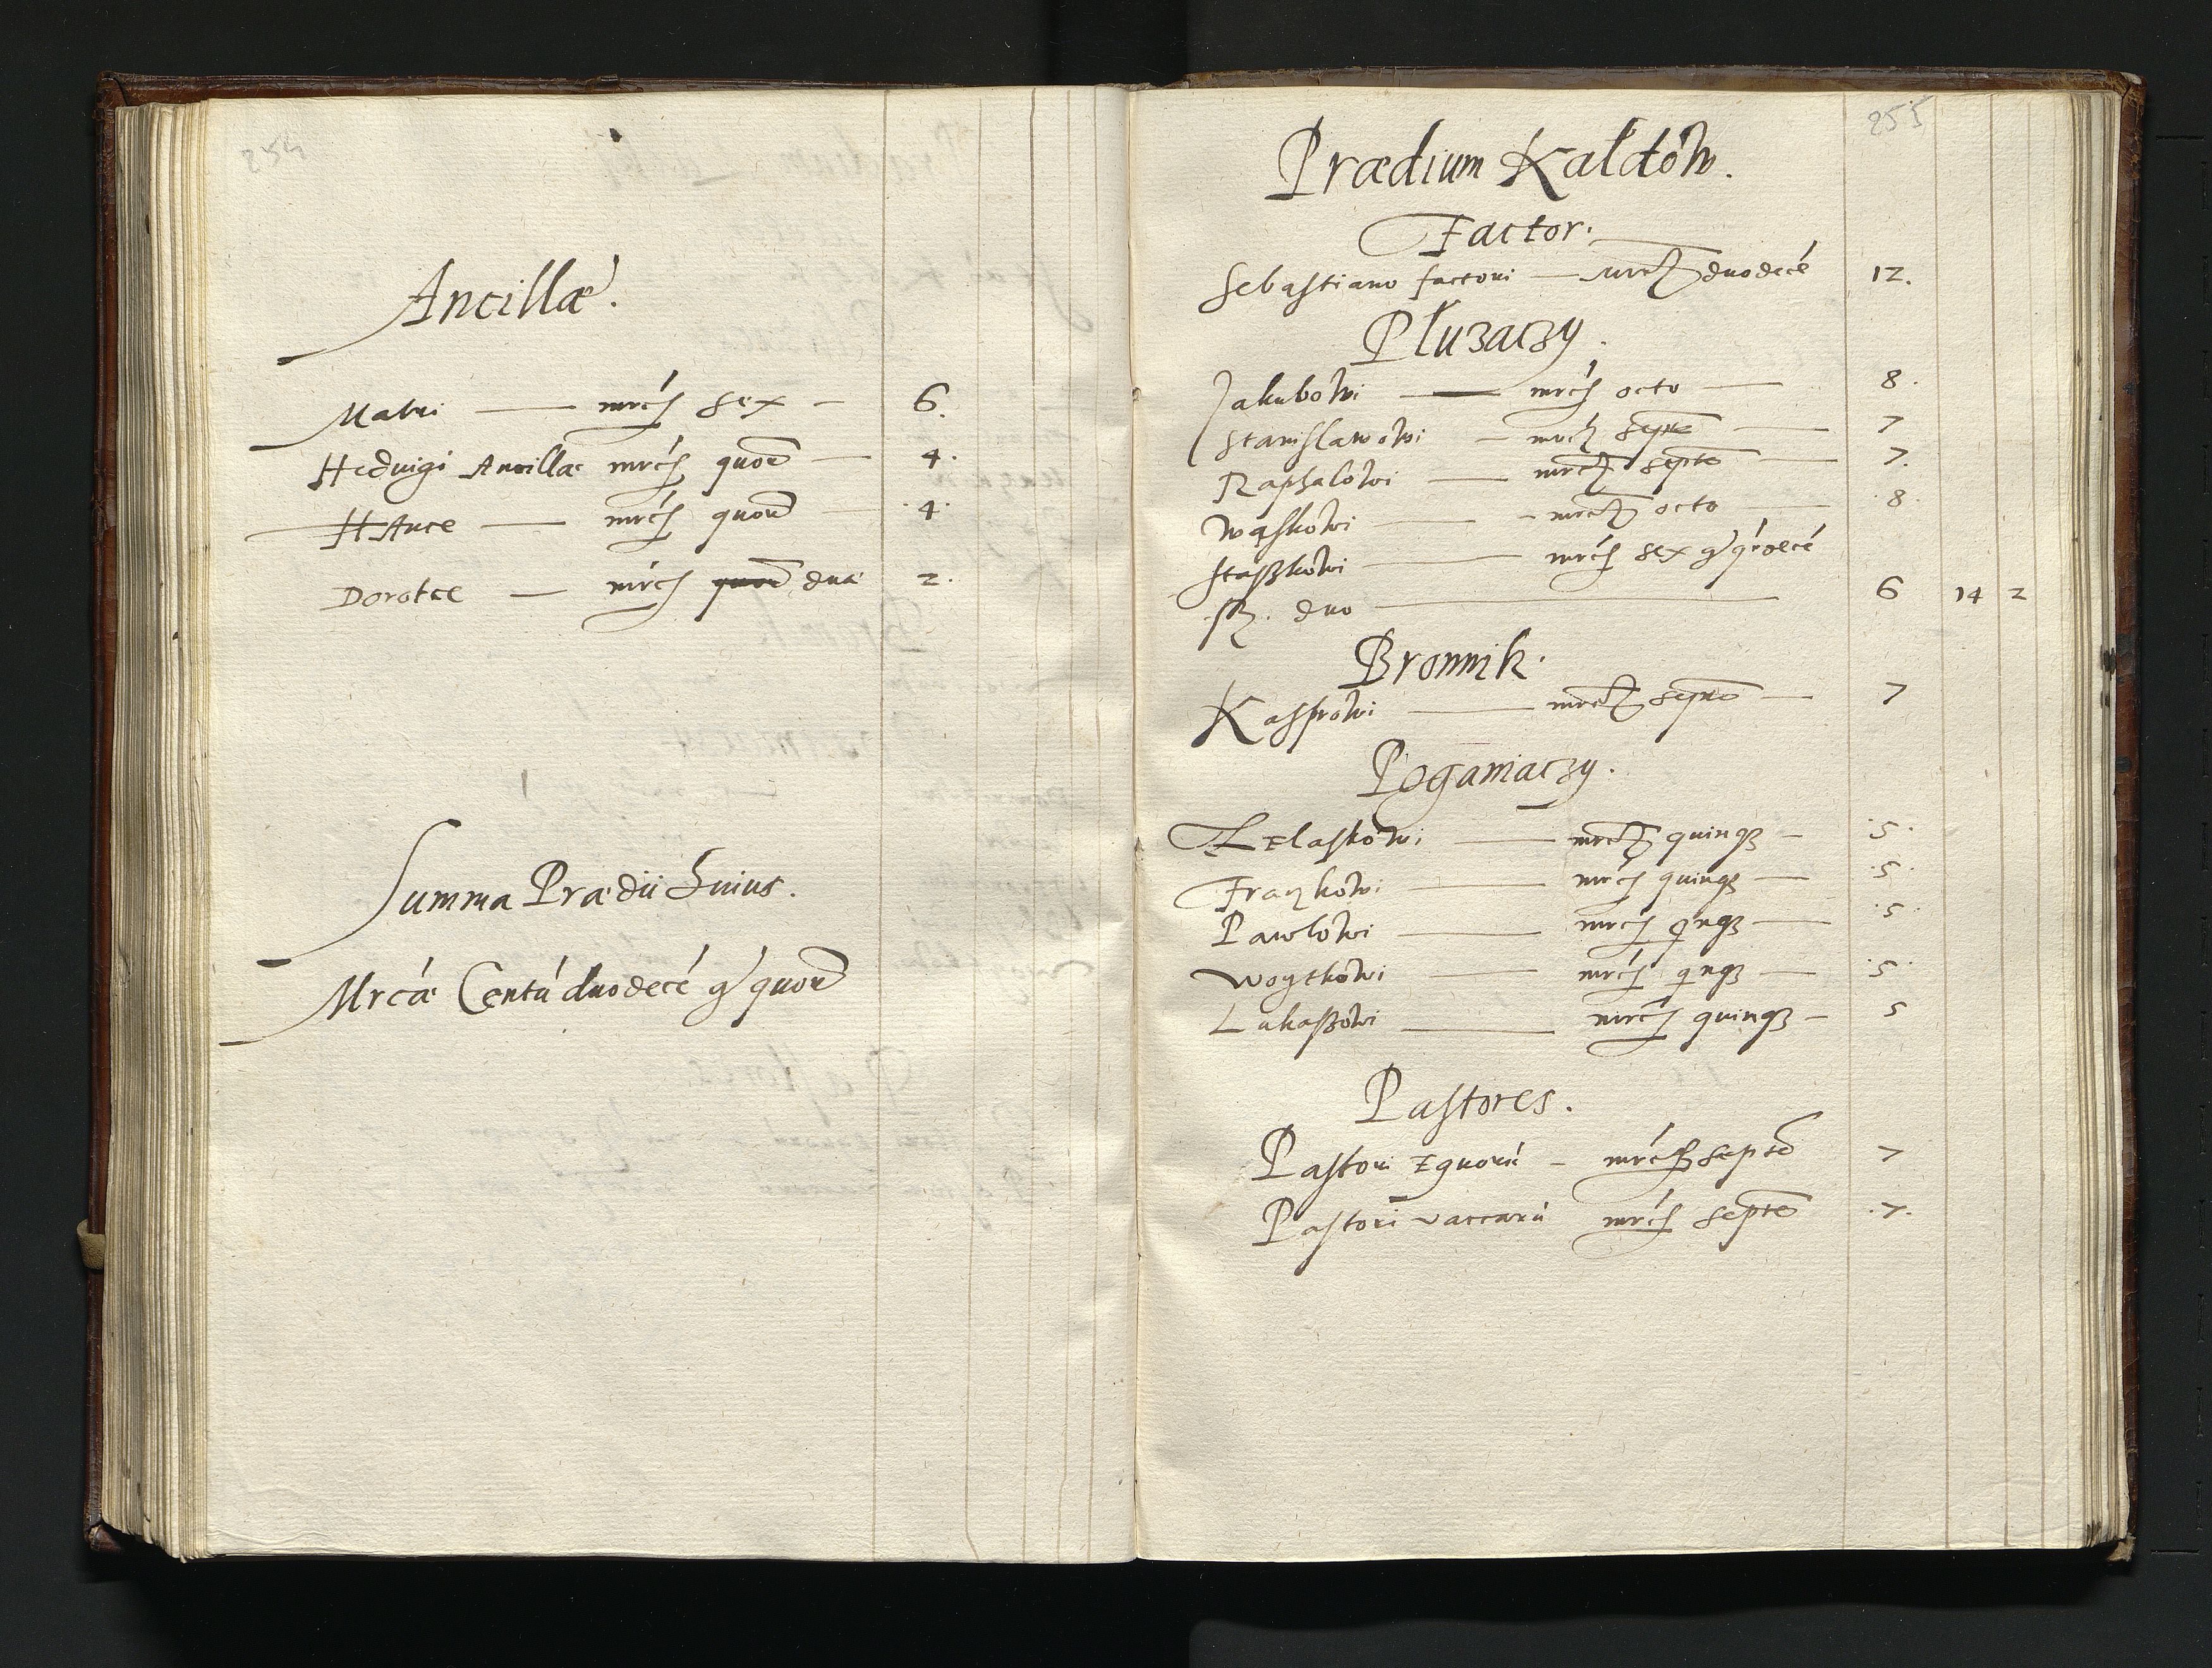 254
Ancillæ.
Matri — mrcȷ sex — 6.
Heduigi Ancillae mrcȷ quor — 4.
HAnce — mrcȷ quor — 4.
Dorotce — mrcȷ quor dua 2.
Summa Prædii huius.
Mrcæ Centú duodecé gr quor
255
Prædium Kałdów.
Factor.
Sebastiano factori — mrc duodecé 12.
Płuzaczy.
Jakubowi — mrcȷ octo — 8.
Stanislawowi — mrc septe — 7
Raphalowi — mrc septe — 7.
Wąskowi — mrc octo — 8.
Staßkowi — mrcȷ sex gr qrdecé
ß. duo — 6 14 2
Bronnik.
Kasprowi — mrc septe — 7
Poganiaczy.
Lelaskowi — mrc quinqȝ — 5.
Frączkowi — mrcȷ quinqȝ — 5.
Pawlowi — mrcȷ qnqȝ — 5.
Woytkowi — mrcȷ qnqȝ — 5.
Lukaßowi — mrcȷ quinqȝ — 5
Pastores.
Pastori Equorú — mrc septe 7
Pastori vaccarú mrcȷ septe 7.